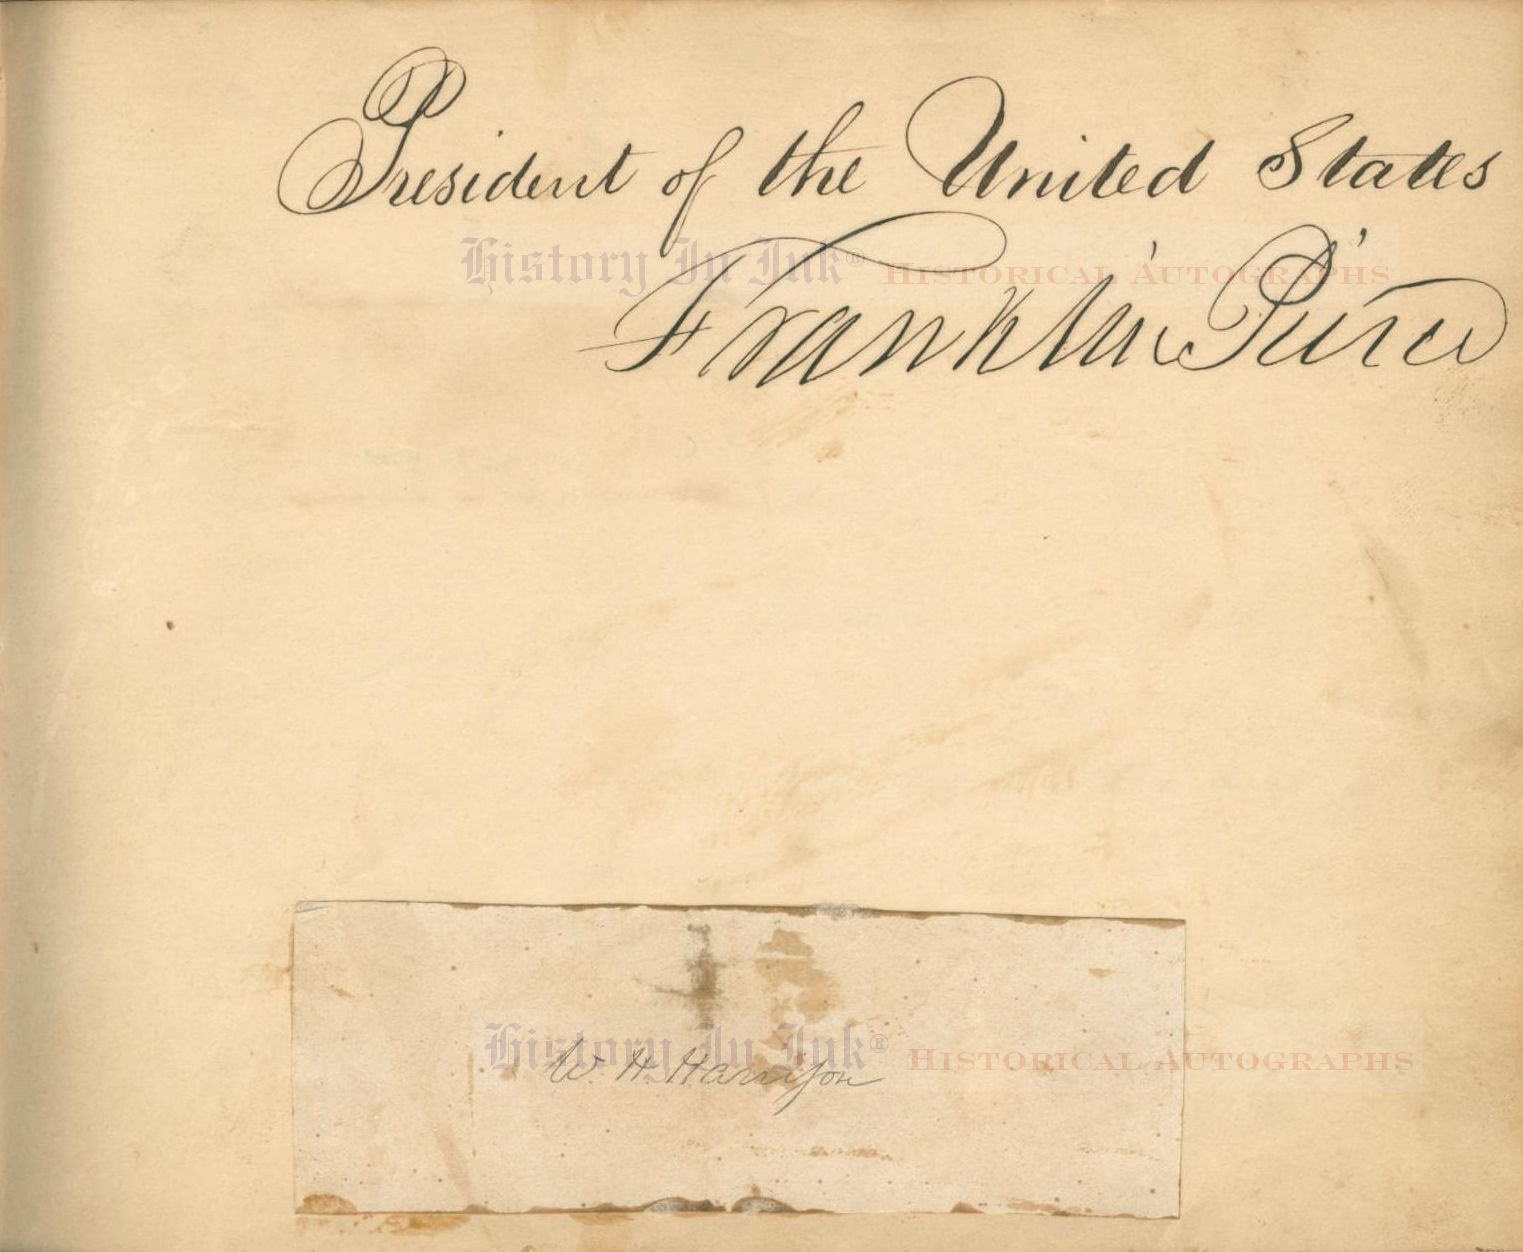 President of the United States
History In Ink® Historical Autographs
Franklin Pierce
History In Ink® Historical Autographs
W. H. Harrison